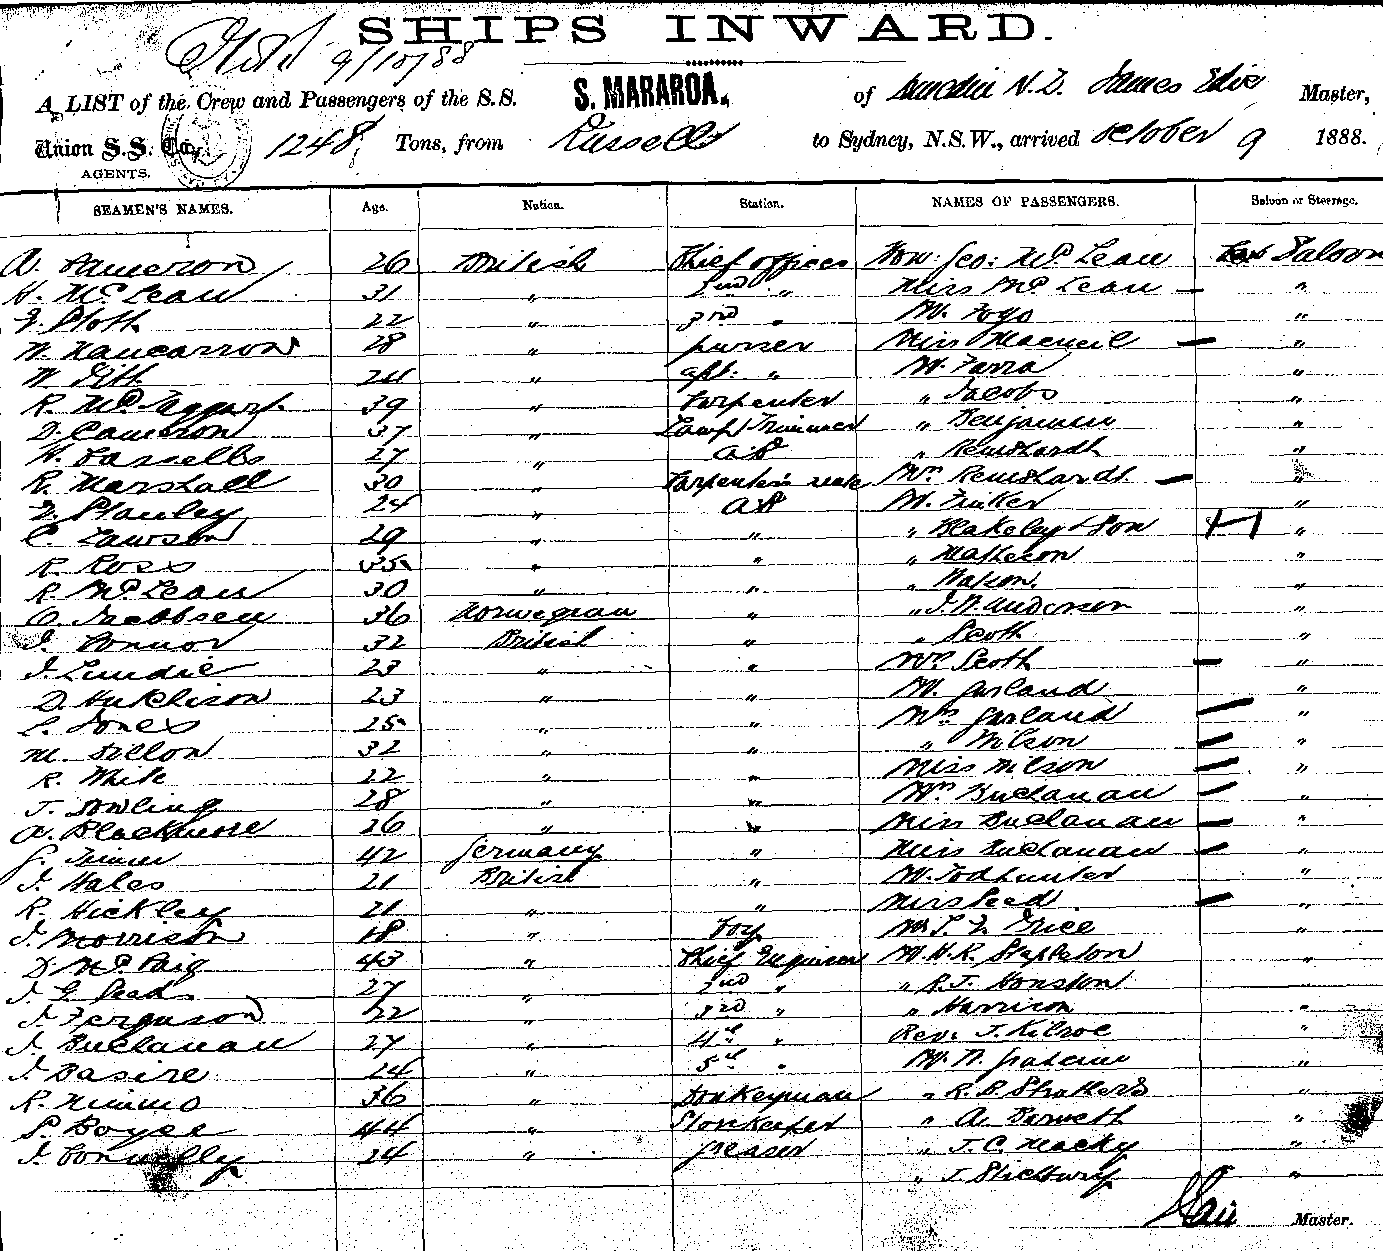 SHIPS INWARD.
9/10/88
A LIST of the Crew and Passengers of the S.S. S. MARAROA, of Dunedin N.Z. James Edie Master,
Union S.S. Coy. 1248 Tons, from Russells to Sydney, N.S.W., arrived October 9 1888.
AGENTS.
SEAMEN'S NAMES. Age. Nation. Station. NAMES OF PASSENGERS. Saloon or Steerage.
A. Cameron 26 British Chief officer Hon. Geo: McLean Saloon
H. McLean 31 " 2nd " Miss McLean "
22 " 3rd " Mr. Fogo "
W. Nancarrow 28 " purser Miss Macneil "
W. 24 " asst: " Mr. Farra "
R. McTaggart 39 " Carpenter " Jacobs "
D. Cameron 37 " Lamp Trimmer " Benjamin "
W. Lassells 27 " AB " Reinhardt "
R. Marshall 30 " Carpenter's mate Mrs. Reinhardt "
F. Stanley 24 " AB Mr. Tinker "
C. Lawson 29 " " " Blakeley & Son "
R. Ross 35 " " " Matheson "
R. McLean 30 " " " Watson "
O. 36 Norwegian " " J. W. Anderson "
J. Connor 32 British " " Scott "
J. Lundie 23 " " Mrs Scott "
D. Hutchison 23 " " Mr. Garland "
C. Jones 25 " " Mrs Garland "
M. Dillon 32 " " " Wilson "
R. White 22 " " Miss Wilson "
J. Dowling 28 " " Mrs Buchanan "
A. Blackmore 26 " " Miss Buchanan "
42 Germany " Miss Buchanan "
J. Hales 21 British " Mr. Todhunter "
R. Hickley 21 " " Mrs Leed "
J. Morrison 18 " Boy Mr T. F. Grice "
D. McPaig 43 " Chief Engineer Mr. H. R. Stapleton "
J. G. 27 " 2nd " " R. J. Houston
J. Ferguson 22 " 3rd " " Harrison "
J. Buchanan 27 " 4th " Rev. J. Kilroe "
J. Basire 24 " 5th " Mr. W. Grahame "
R. Nimmo 36 " Donkeyman " R. B. "
P. Boyce 44 " Storekeeper " A. "
J. Connelly 24 " Greaser " J. C. Macky "
" J. "
Master.